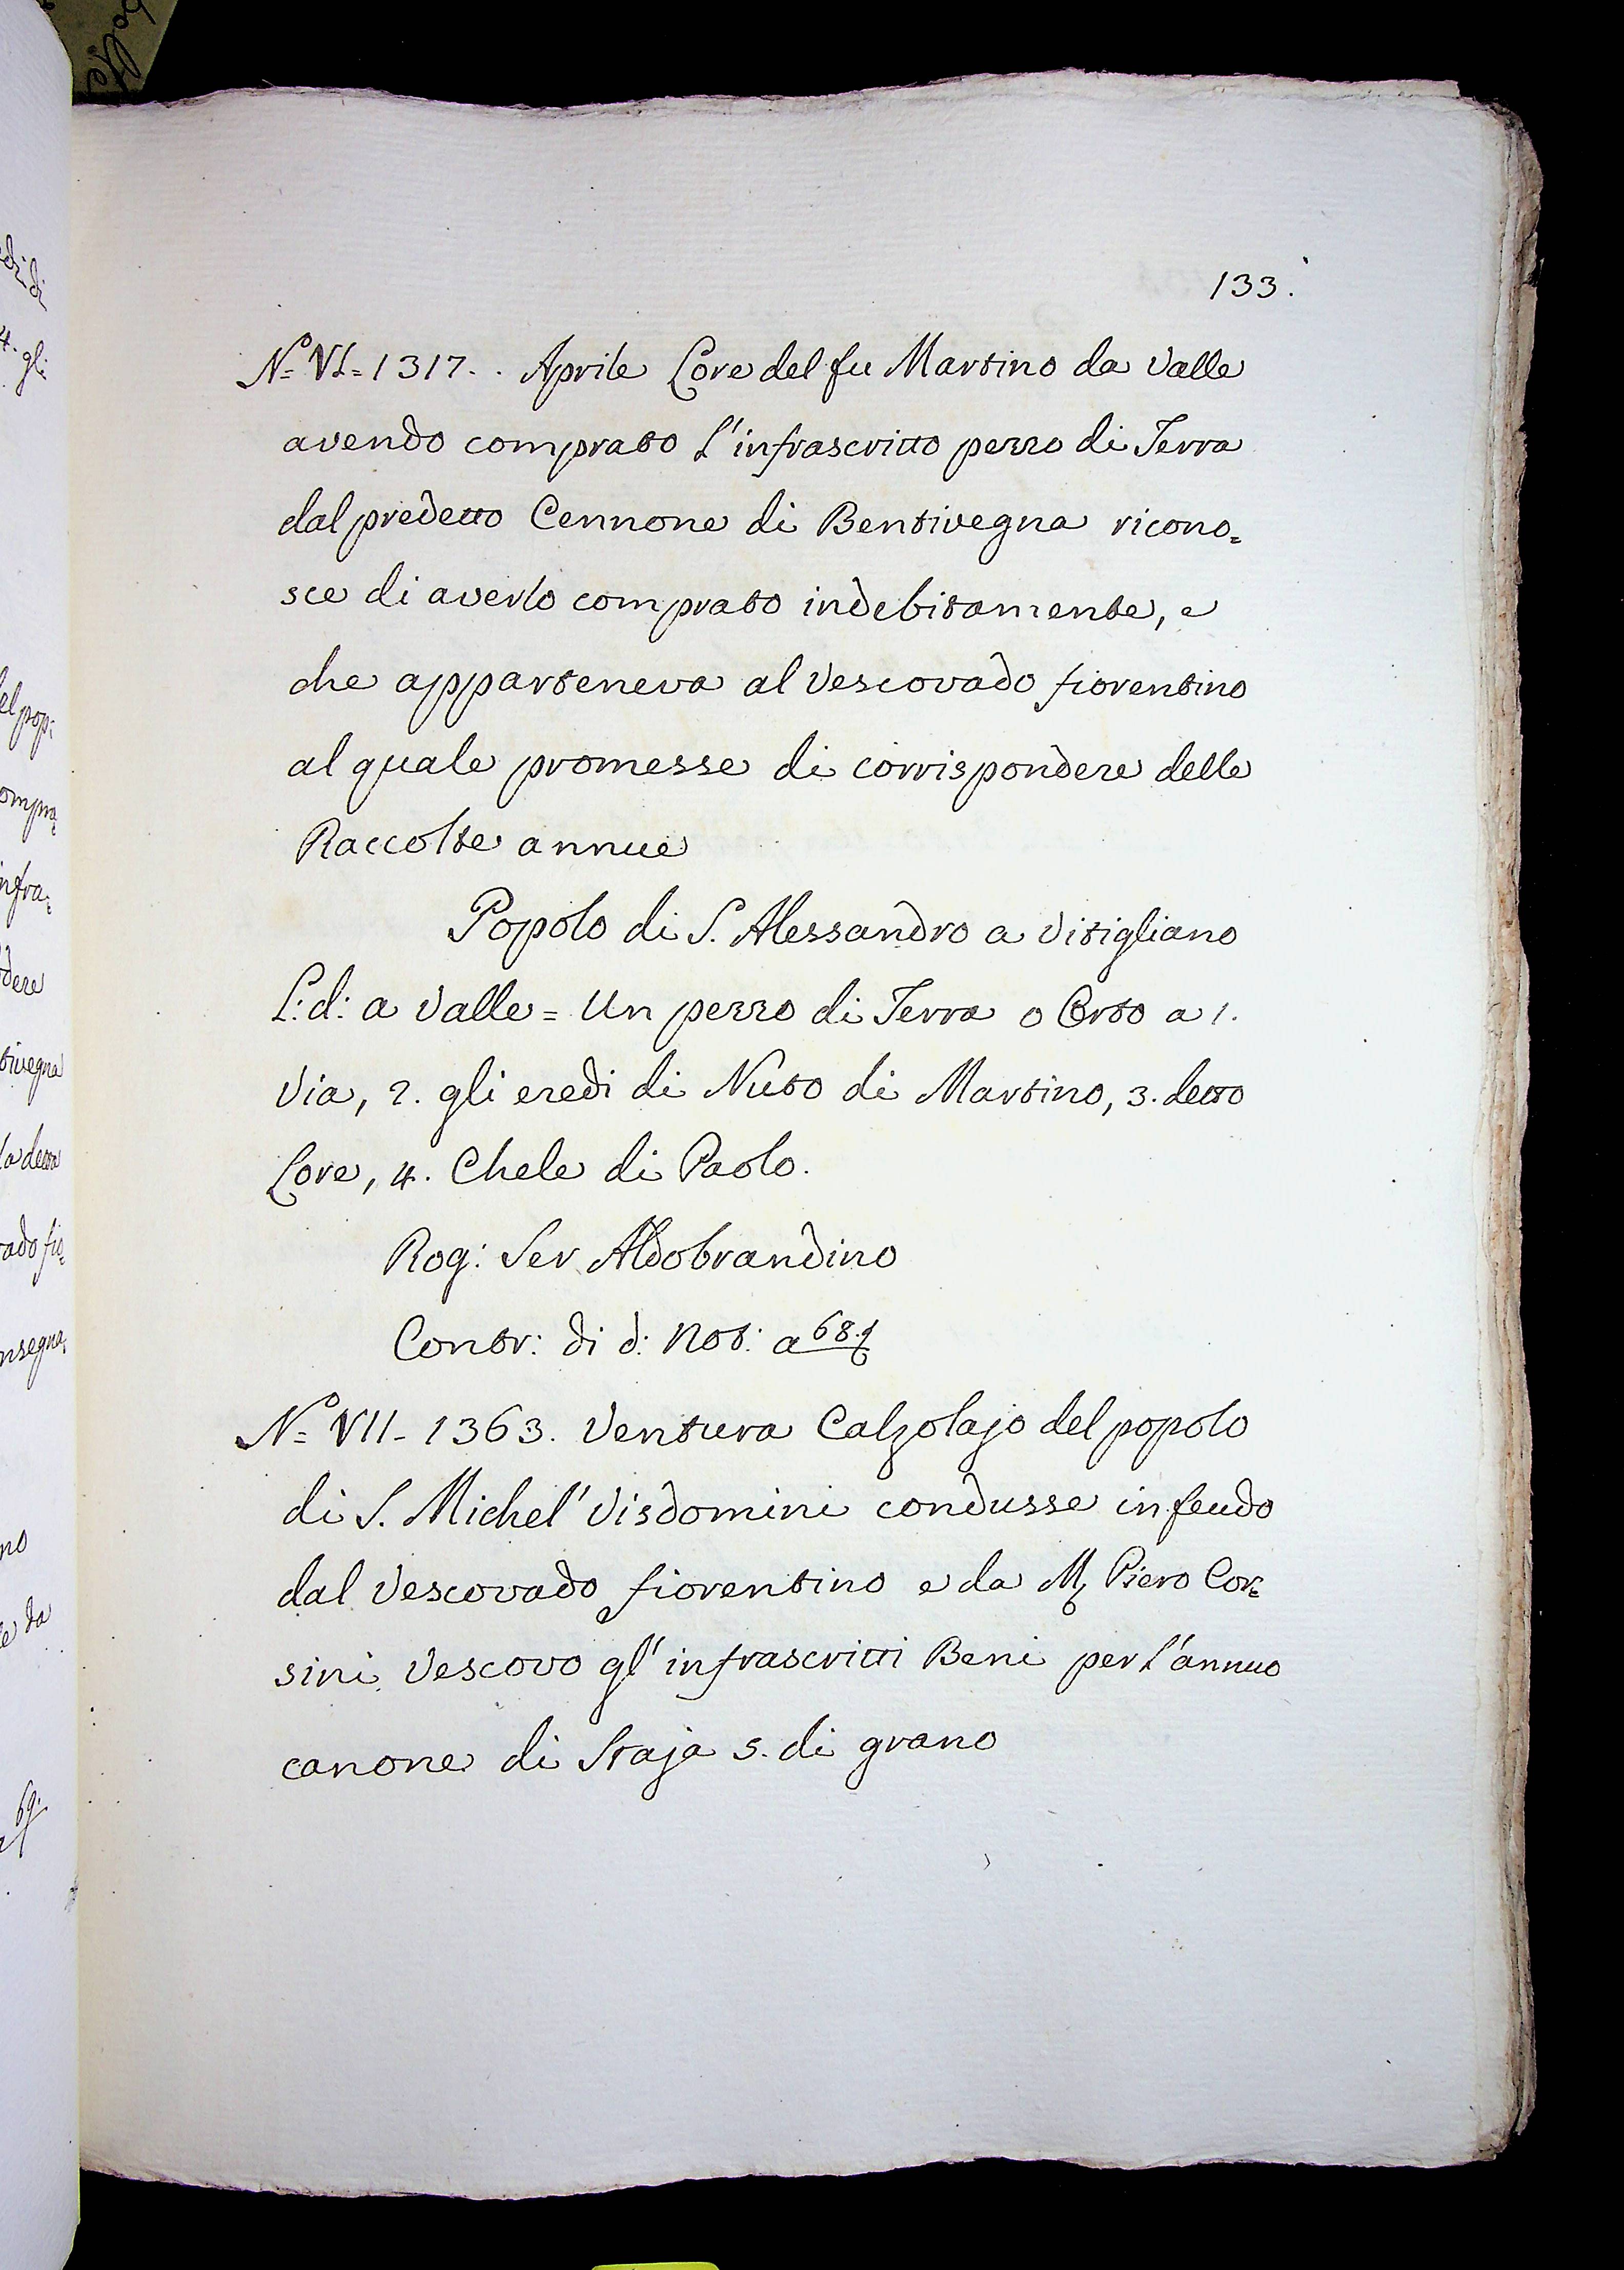 133.
N.º VI = 1317. . Aprile Lore del fu Martino da Valle
avendo comprato l'infrascritto pezzo di Terra
dal predetto Cennone di Bentivegna ricono=
sce di averlo comprato indebitamente, e
che apparteneva al Vescovado fiorentino
al quale promesse di corrispondere delle
Raccolte annue
Popolo di S. Alessandro a Vitigliano
L: d: a Valle = Un pezzo di Terra o Orto a 1.
Via, 2. gli eredi di Nuto di Martino, 3. detto
Lore, 4. Chele di Paolo.
Rog: Ser Aldobrandino
Contr: di d: Not: a 68.
N.º VII - 1363. Ventura Calzolajo del popolo
di S. Michel' Visdomini condusse in feudo
dal Vescovado fiorentino e da M. Piero Cor=
sini Vescovo gl'infrascritti Beni per l'annuo
canone di Staja 5. di grano